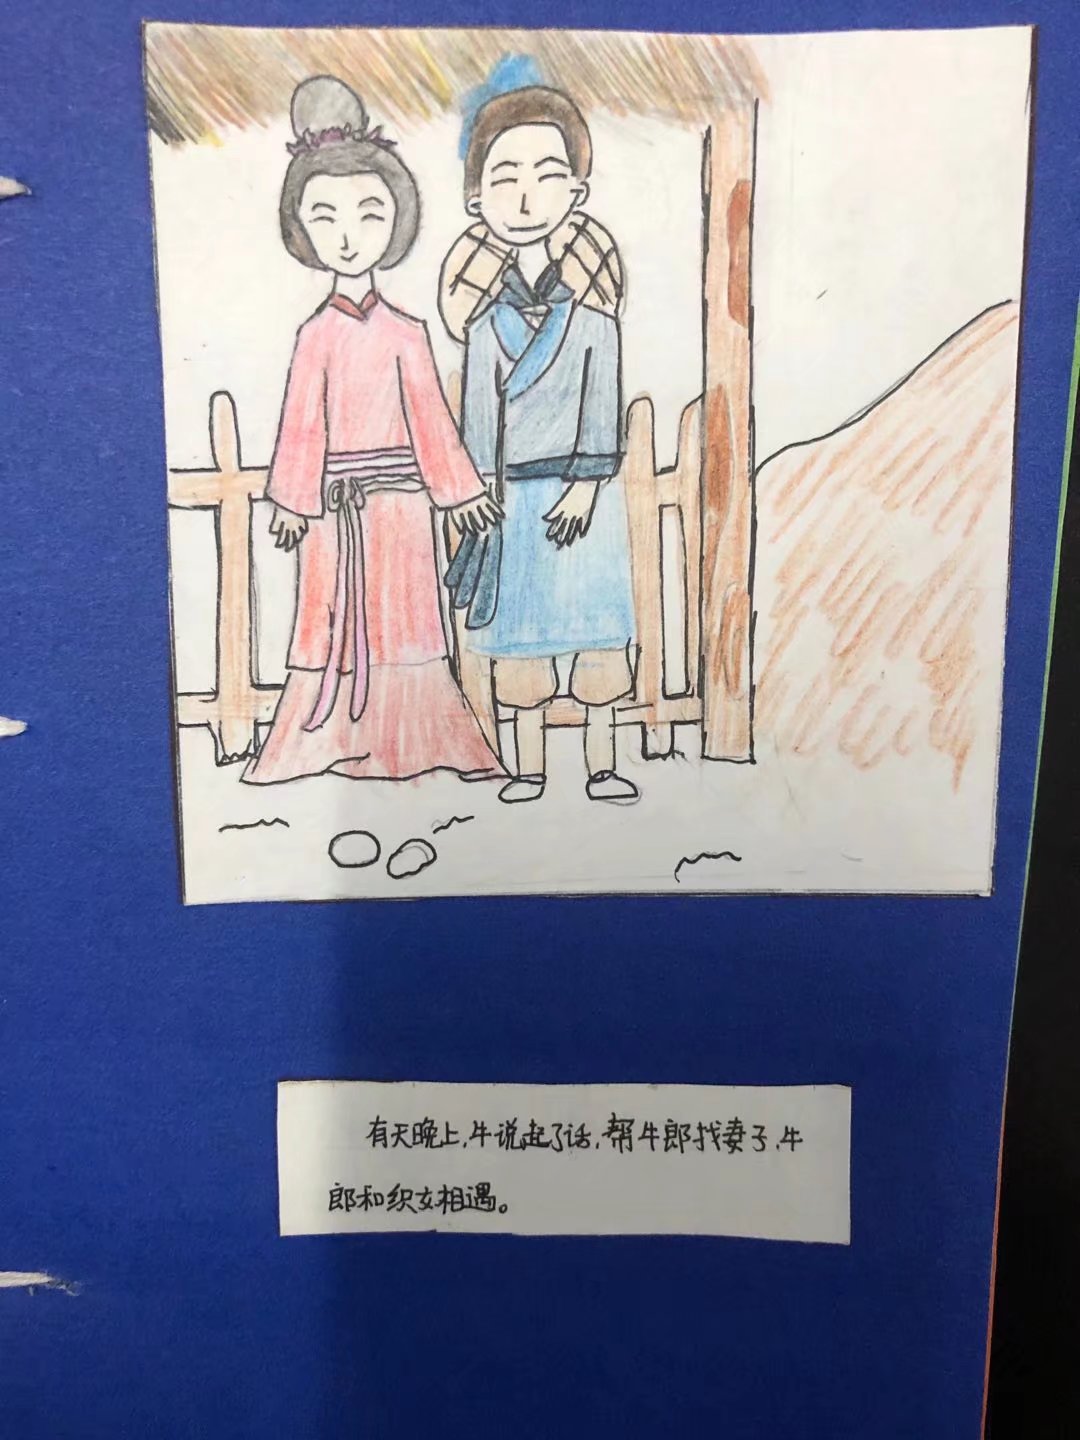 有天晚上,牛说起了话,帮牛郎找妻子,牛
郎和织女相遇。